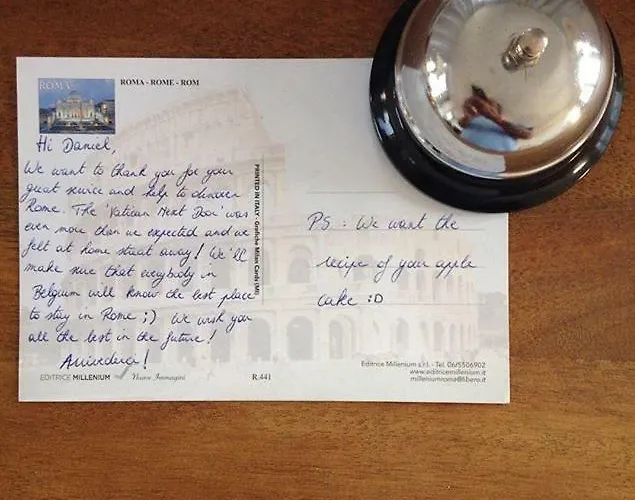 ROMA
ROMA - ROME - ROM
Hi Daniel,
We want to thank you for your
great service and help to discover
Rome. The 'Vatican Next Door' was
even more than we expected and we
felt at home straat away! We'll
make sure that everybody in
Belgium will know the best place
to stay in Rome ;) We wish you
all the best in the future!
Arrivederci!
EDITRICE MILLENIUM
Nuove Immagini
R.441
PRINTED IN ITALY - Grafiche Milas Cards (MI)
PS: We want the
recipe of your apple
cake :D
Editrice Millenium s.r.l. - Tel. 06/5506902
www.editricemillenium.it
milleniumroma@libero.it